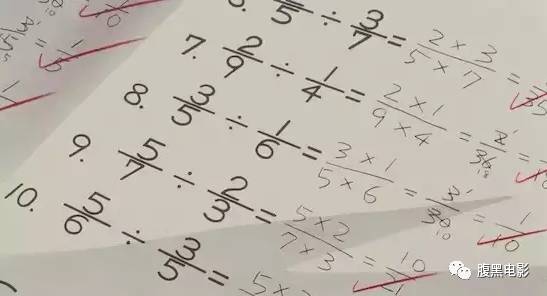 /5 ÷ 3/7 = 2 × 3 / 5 × 7 =
7. 2/9 ÷ 1/4 = 2 × 1 / 9 × 4 =
8. 3/5 ÷ 1/6 = 3 × 1 / 5 × 6 = 3/30 = 1/10
9. 5/7 ÷ 2/3 = 5 × 2 / 7 × 3 = 10/
10. 5/6 ÷ 3/5 = 5 ×
腹黑电影